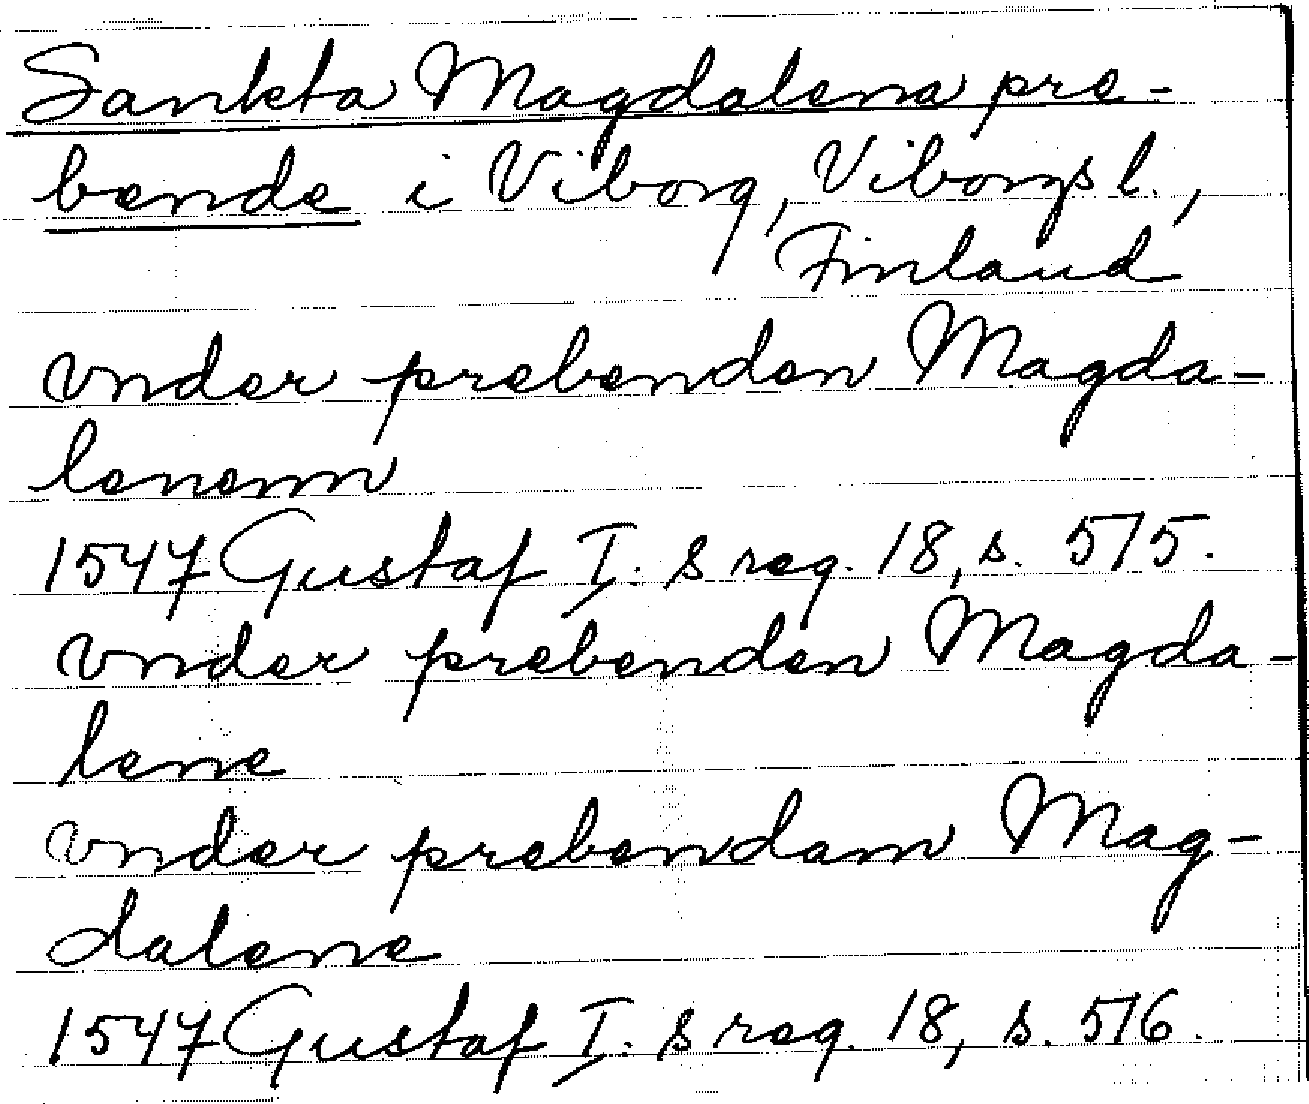 Sankta Magdalena pre-
bende i Viborg, Viborgs l.,
Finland
vnder prebenden Magda-
lenenn
1547 Gustaf I. s reg. 18, s. 575.
vnder prebenden Magda-
lene
vnder prebendam Mag-
dalene
1547 Gustaf I. s reg. 18, s. 576.